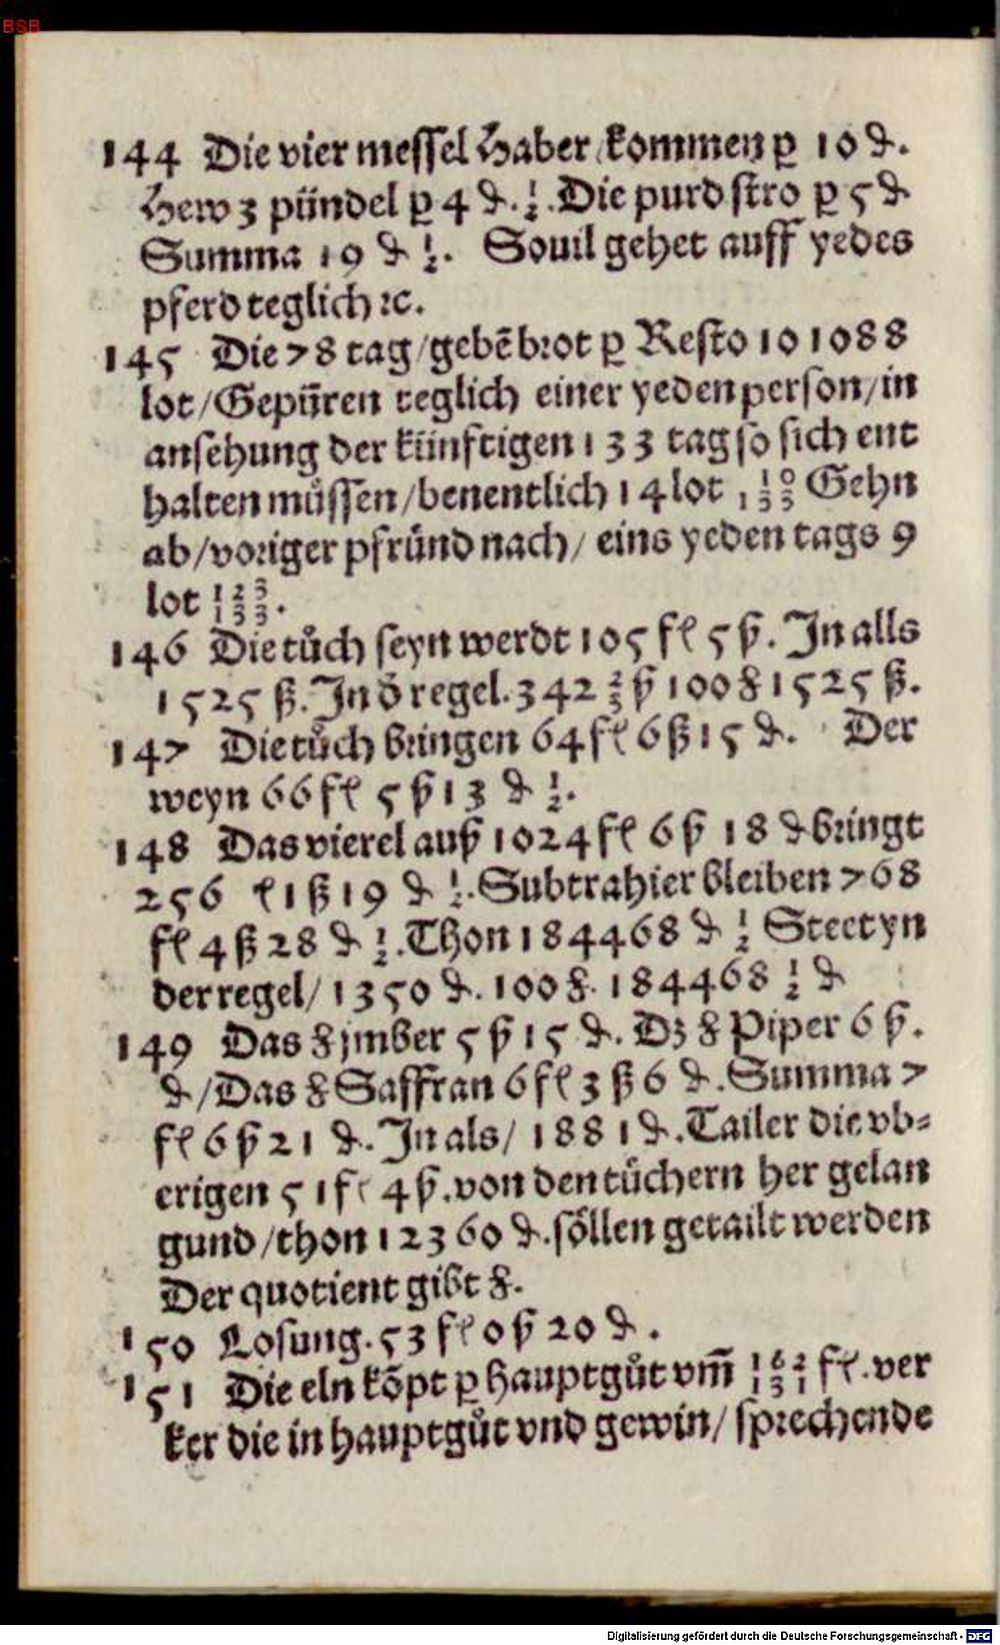 BSB
144 Die vier messel Haber kommen ꝑ 10 ₰.
Hew 3 pündel ꝑ 4 ₰. 1/2. Die purd stro ꝑ 5 ₰
Summa 19 ₰ 1/2. Souil gehet auff yedes
pferd teglich ꝛc.
145 Die 78 tag/gebẽ brot ꝑ Resto 101088
lot/Gepüren teglich einer yeden person/in
ansehung der künftigen 133 tag so sich ent
halten müssen/benentlich 14 lot 10/133 Gehn
ab/voriger pfründ nach/ eins yeden tags 9
lot 123/133.
146 Die tůch seyn werdt 105 fl 5 ß. In alls
1525 ß. In d̄ regel. 342 2/3 ß 100 ℔ 1525 ß.
147 Die tůch bringen 64 fl 6 ß 15 ₰. Der
weyn 66 fl 5 ß 13 ₰ 1/2.
148 Das vierel auß 1024 fl 6 ß 18 ₰ bringt
256 l 1 ß 19 ₰ 1/2. Subtrahier bleiben 768
fl 4 ß 28 ₰ 1/2. Thon 184468 ₰ 1/2 Steet yn
der regel/ 1350 ₰. 100 ℔. 184468 1/2 ₰
149 Das ℔ jmber 5 ß 15 ₰. Dz ℔ Piper 6 ß.
₰/Das ℔ Saffran 6 fl 3 ß 6 ₰. Summa 7
fl 6 ß 21 ₰. In als/ 1881 ₰. Tailer die vb-
erigen 51 fl 4 ß. von den tüchern her gelan
gund/thon 12360 ₰. söllen getailt werden
Der quotient gibt ℔.
150 Losung. 53 fl 0 ß 20 ₰.
151 Die eln kõpt ꝑ hauptgůt vm̃ 162/131 fl. ver
ker die in hauptgůt vnd gewin/ sprechende
Digitalisierung gefördert durch die Deutsche Forschungsgemeinschaft - DFG